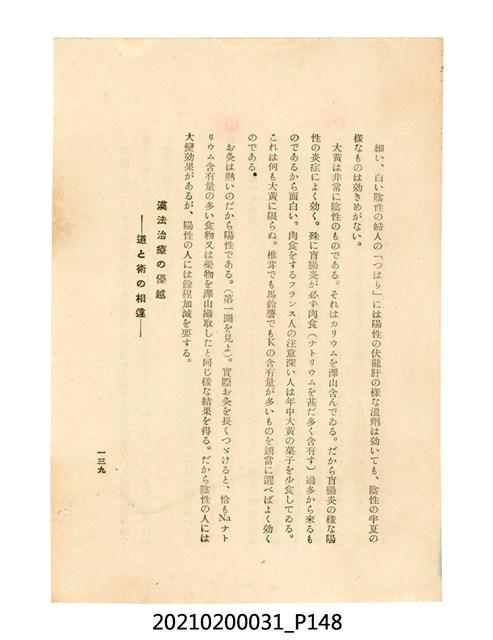 細い、白い陰性の婦人の「つはり」には陽性の伏龍肝の様な溫劑は効いても、陰性の半夏の
様なものは効きめがない。
大黃は非常に陰性のものである。それはカリウムを澤山含んでゐる。だから盲腸炎の様な陽
性の炎症によく効く。殊に盲腸炎が必ず肉食（ナトリウムを甚だ多く含有す）過多から來るも
のであるから面白い。肉食をするフランス人の注意深い人は年中大黃の菓子を少食してゐる。
これは何も大黃に限らぬ。椎茸でも馬鈴薯でもKの含有量が多いものを適當に選べばよく効く
のである。
お灸は熱いのだから陽性である。（第一圖を見よ）。實際お灸を長くつゞけると、恰もNaナト
リウム含有量の多い食物又は藥物を澤山攝取したと同じ様な結果を得る。だから陰性の人には
大變効果があるが、陽性の人には餘程加減を要する。
漢法治療の優越
——道と術の相違——
一三九
20210200031_P148